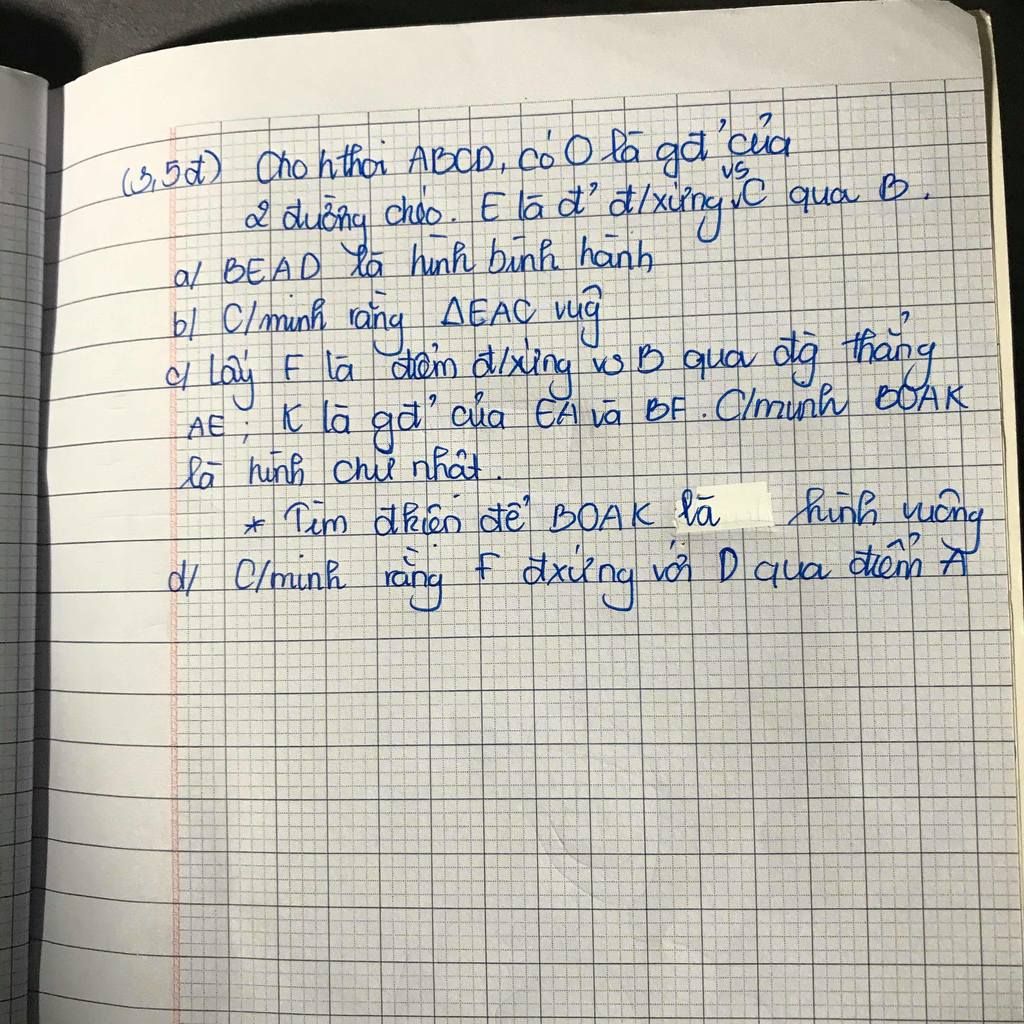 (3,5đ) Cho hthoi ABCD, có O là gđ' của
2 đường chéo. E là đ' đ/xứng vs C qua B.
a/ BEAD là hình bình hành
b/ C/minh rằng ΔEAC vug
c/ Lấy F là điểm đ/xứng vs B qua đg thẳng
AE; K là gđ' của EA và BF. C/minh BOAK
là hình chữ nhật.
* Tìm đkiện để BOAK là hình vuông
d/ C/minh rằng F đxứng với D qua điểm A